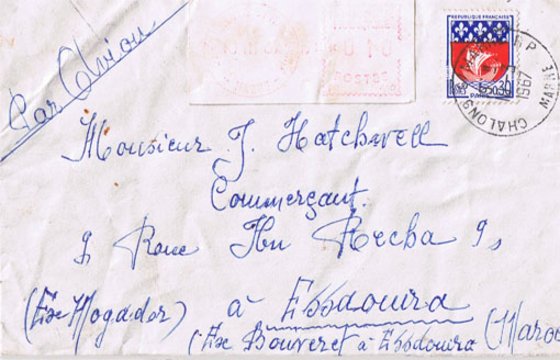 Par Avion
REPUBLIQUE FRANÇAISE
0,30
PARIS
CHALONS
MARNE
1967
Monsieur J. Hatchwell
Commerçant.
9 Roue Ibn Recha 9,
(Ex Mogador) à Essdouira
(Ex Bouveret à Essdouira (Maroc